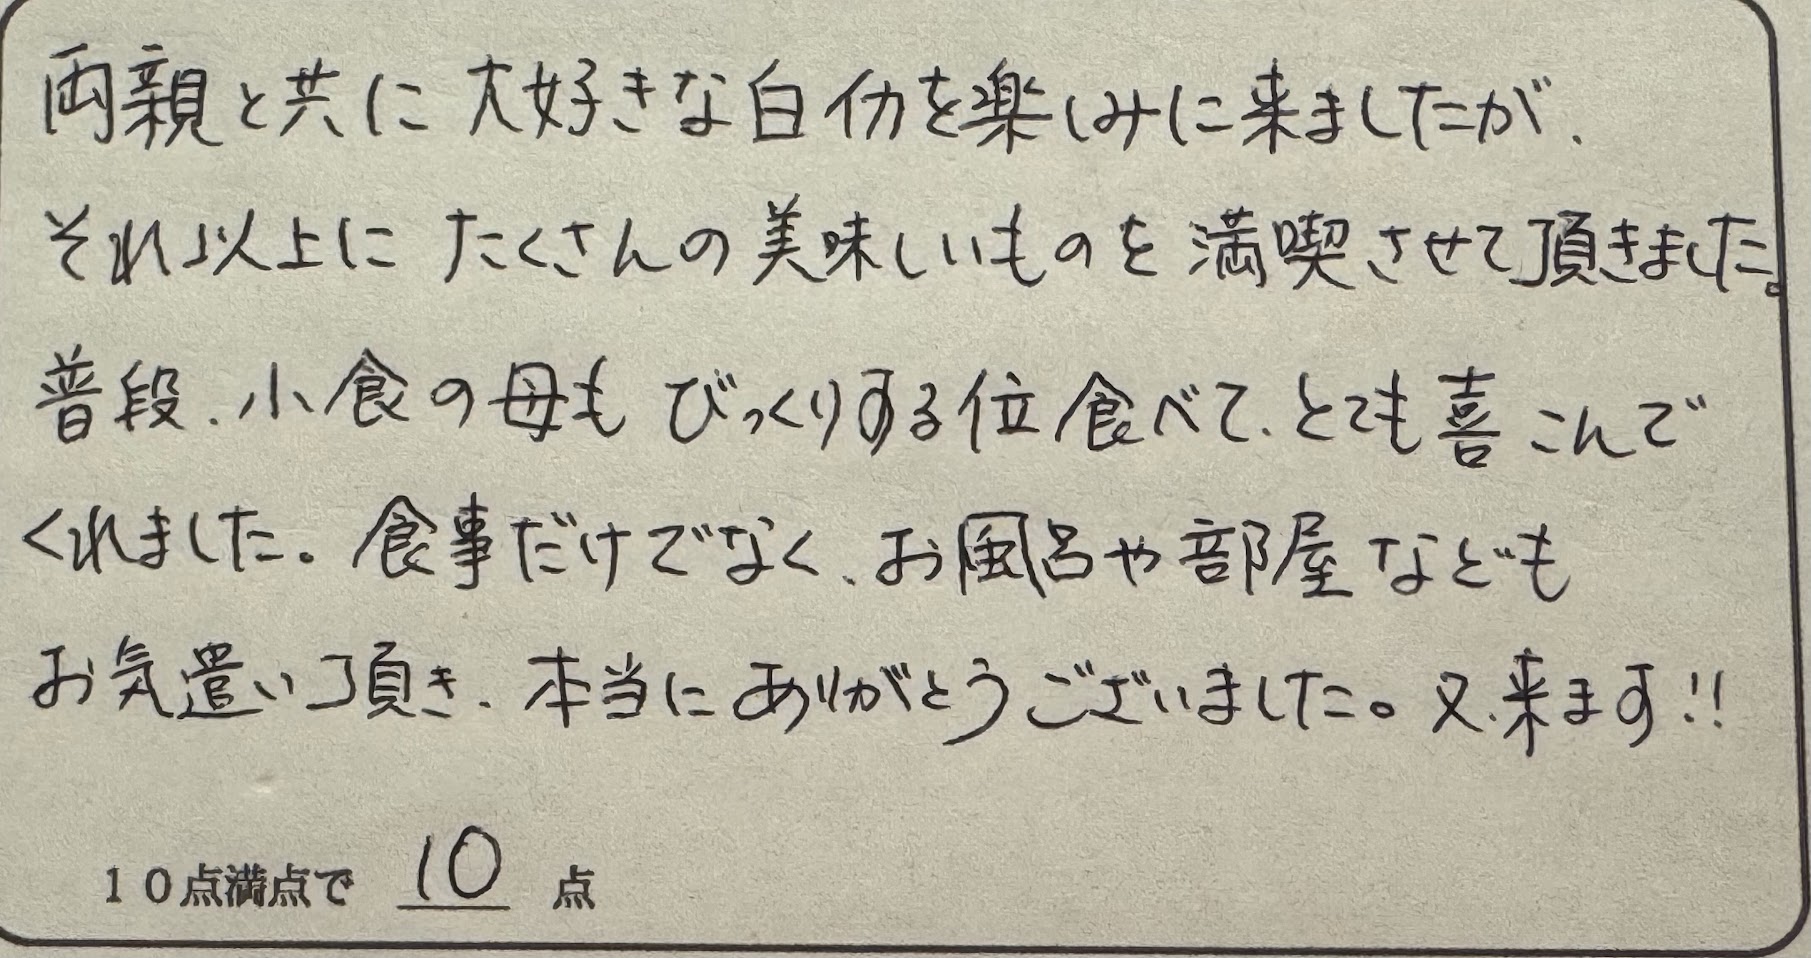 両親と共に大好きな白仂を楽しみに来ましたが、
それ以上にたくさんの美味しいものを満喫させて頂きました。
普段、小食の母もびっくりする位食べて、とても喜こんで
くれました。食事だけでなく、お風呂や部屋なども
お気遣い頂き、本当にありがとうございました。又、来ます!!
10点満点で 10 点